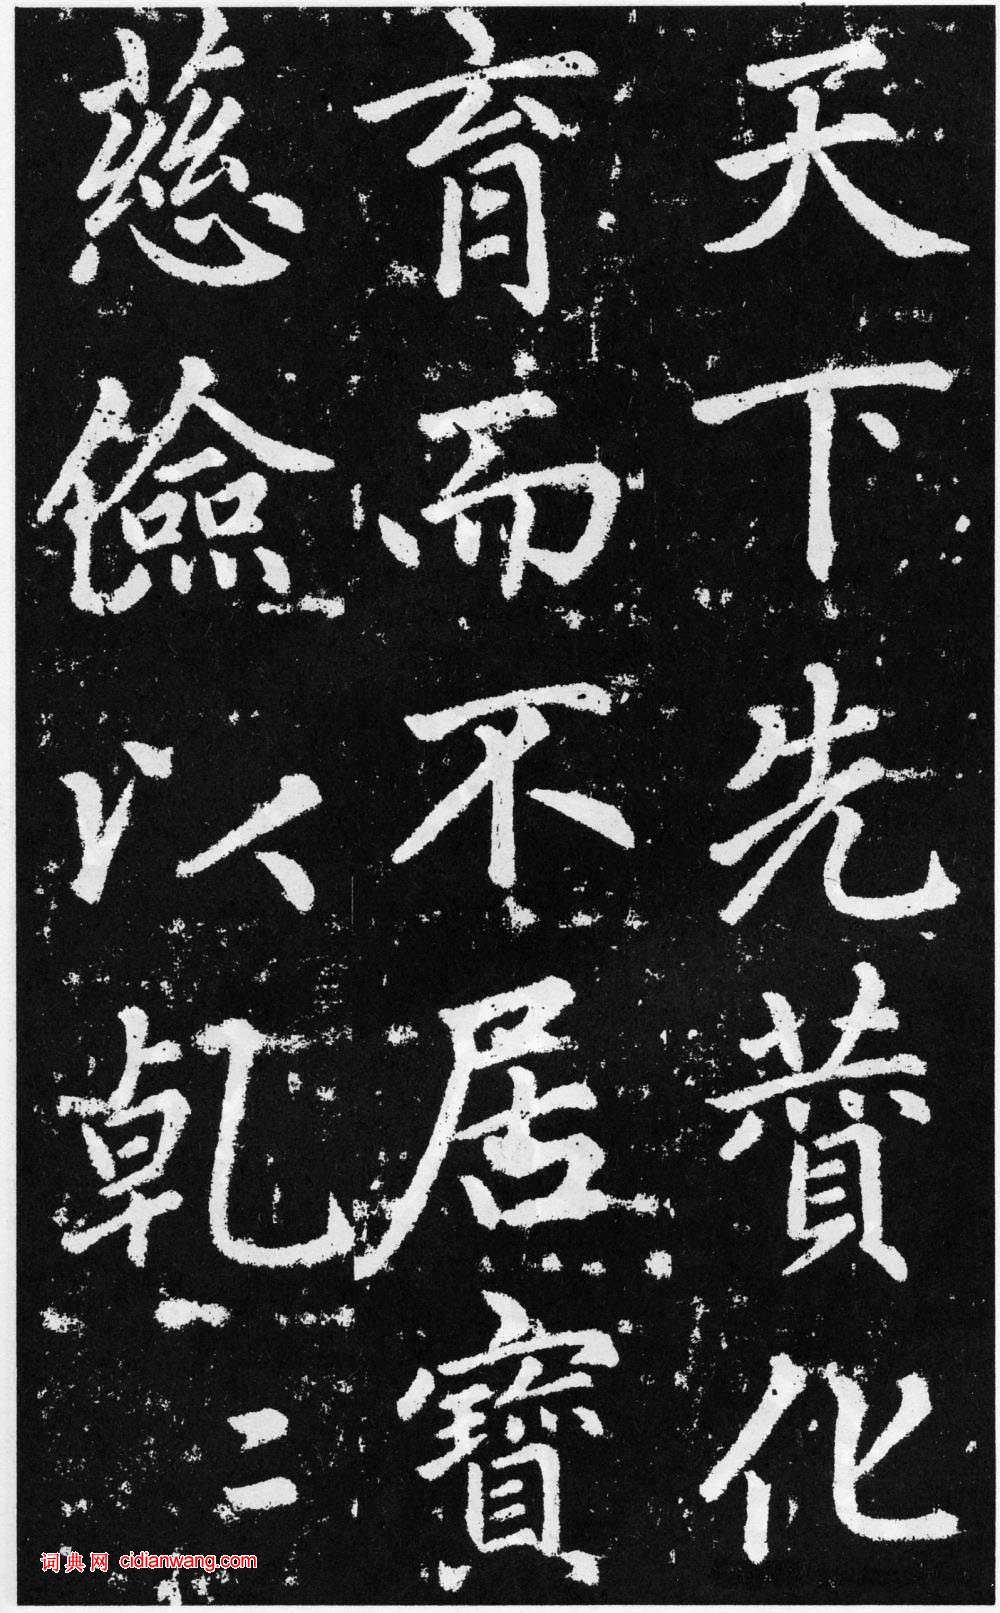 天下先賛化
育而不居寶
慈儉以乾〻
词典网 cidianwang.com